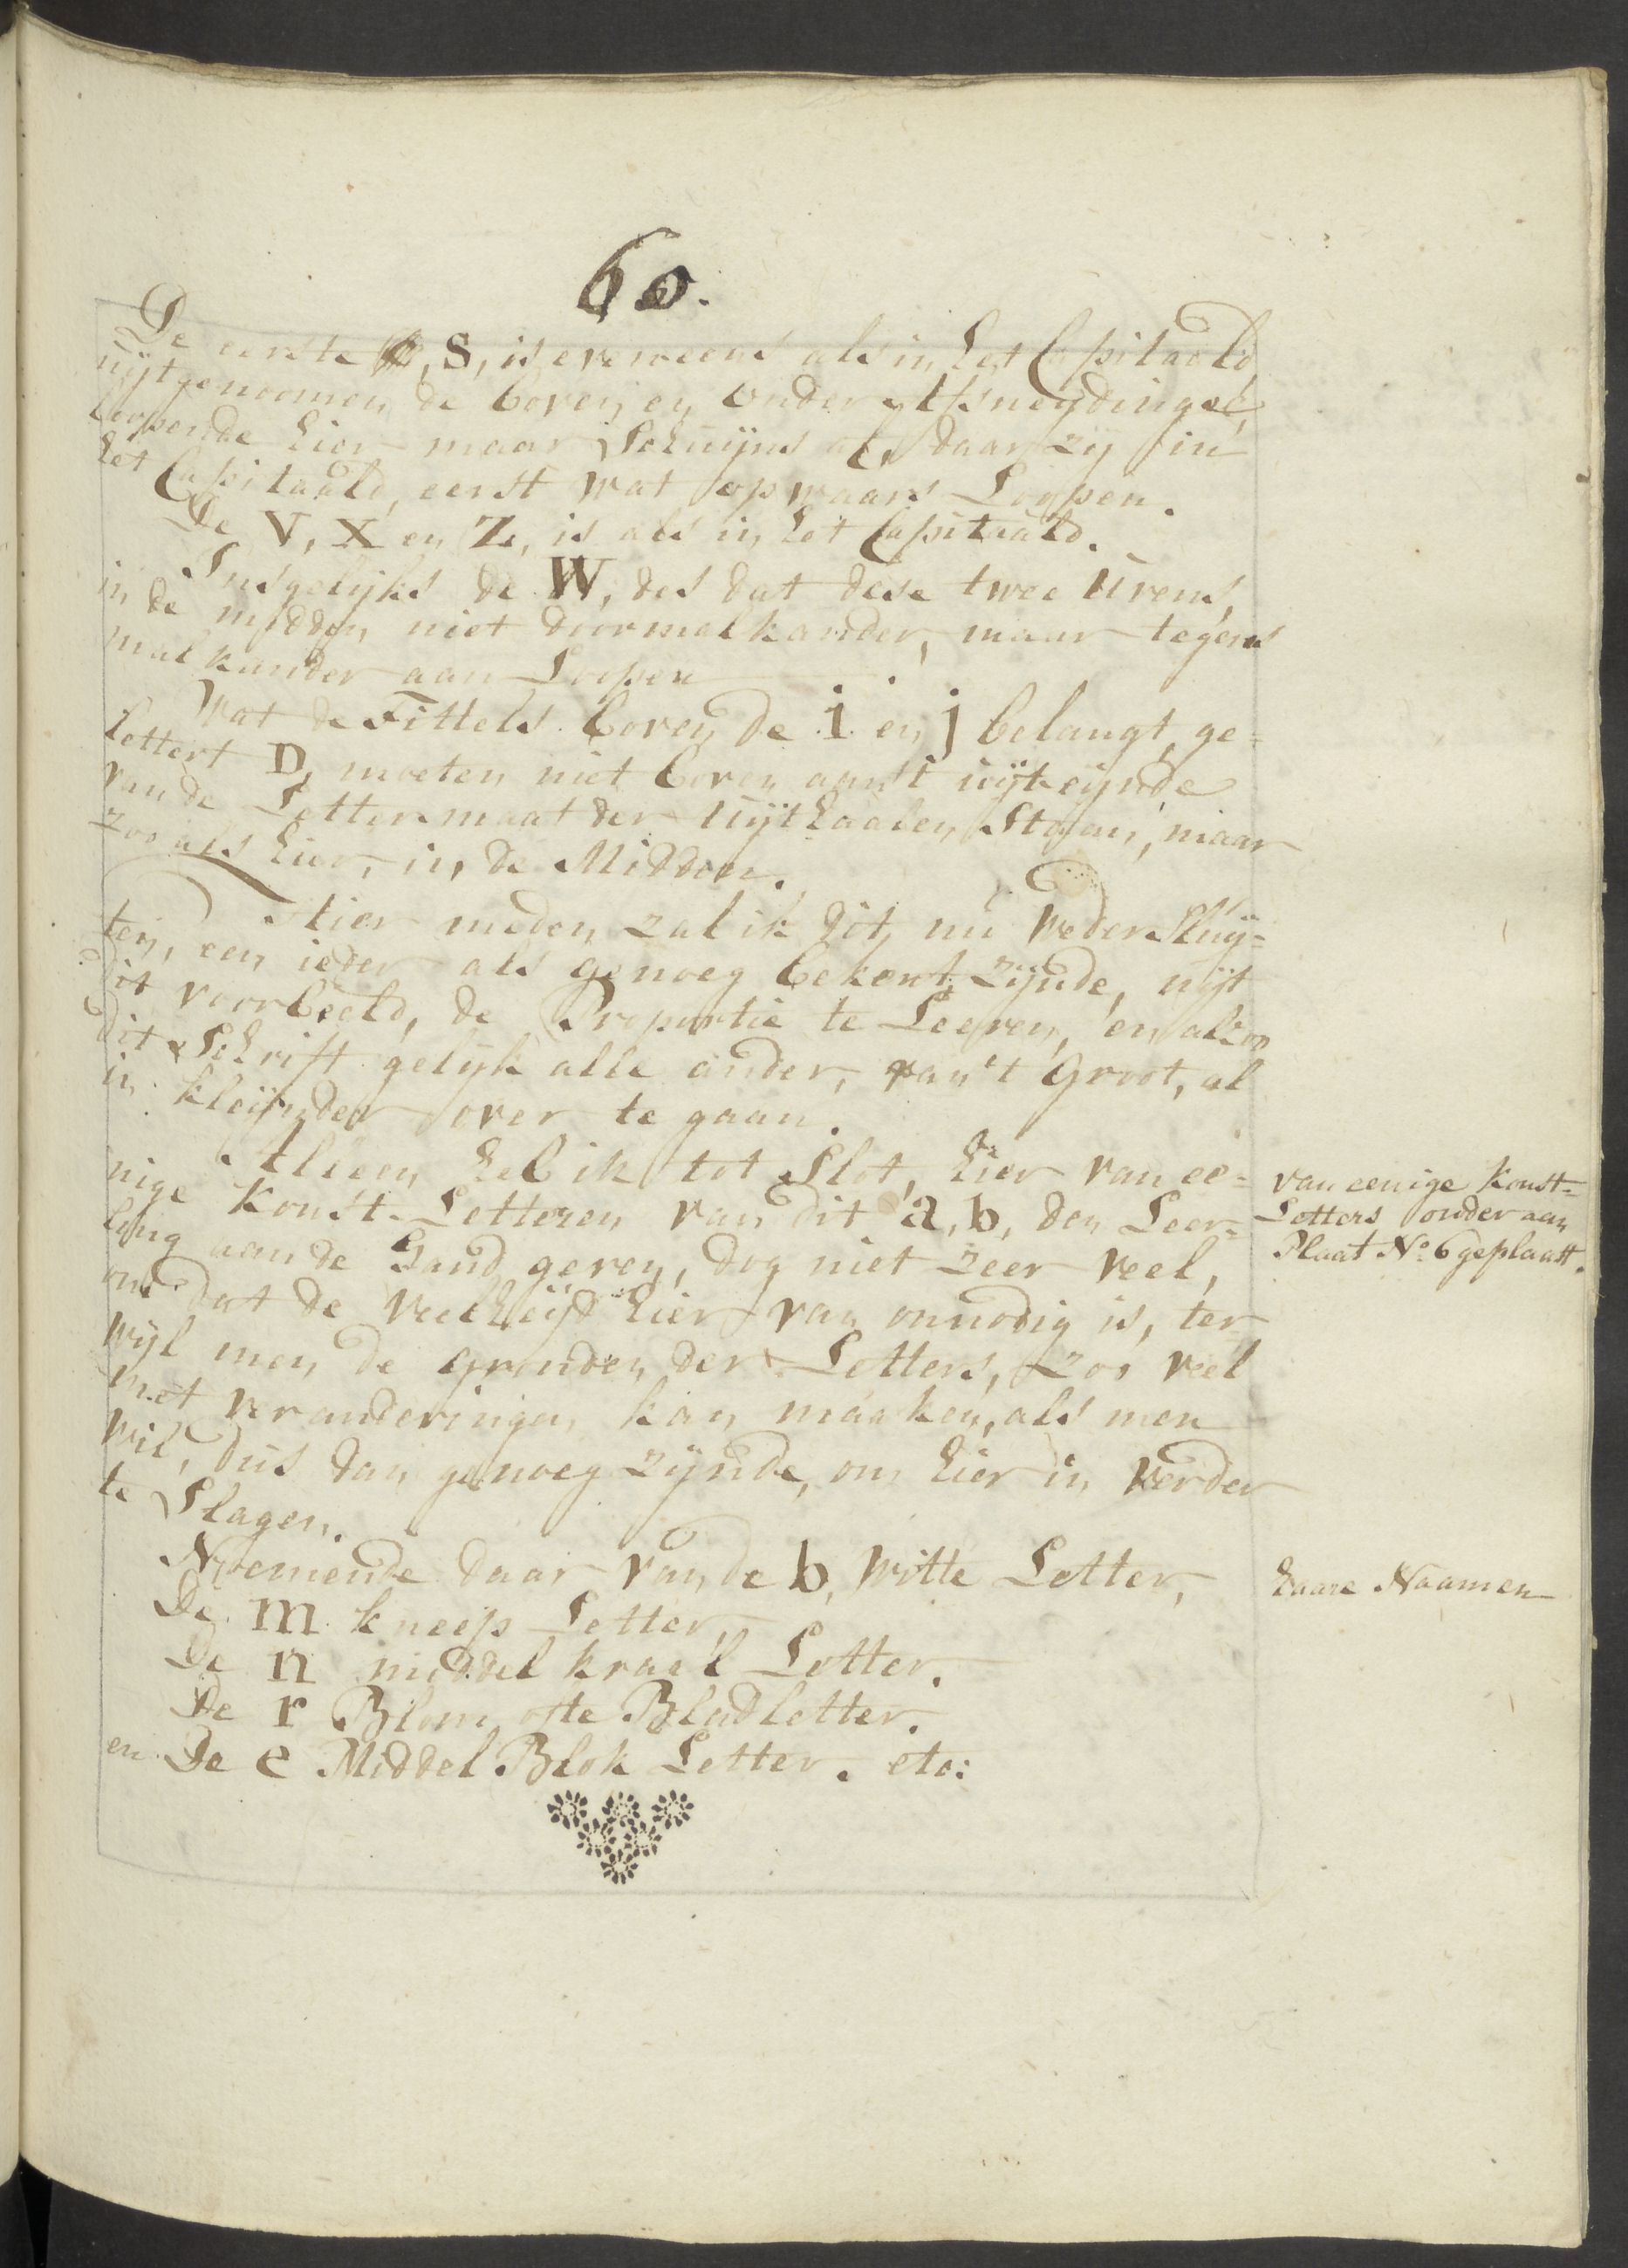 60.
De eerste S, is eveneens als in het Capitaald,
uijtgenoomen de boven en onder afsneydingen,
loopende hier maar Schuijns af, daar zij in
het Capitaald, eerst wat opwaars Loopen.
De V, X en Z, is als in het Capitaald.
Insgelijks de W, des dat dese twee Urens,
in de midden niet doormalkander, maar tegens
malkander aan Loopen
Wat de Tittels boven de i en j belangt, ge=
lettert D, moeten niet boven aan't uijteijnde
van de Lettermaat der Uijthaalen Staan, maar
zoo als hier, in de Midden.
Hier meden zal ik dit nu weder Sluij=
ten, een ieder als genoeg bekent zijnde, uijt
dit voorbeeld, de Proportie te Leeren, en alzoo
dit Schrift gelijk alle ander, van't Groot, al
in kleijnder over te gaan.
Alleen heb ik tot Slot, hier van ee=
nige Konst-Letteren van dit a, b, den Leer=
ling aan de Hand geven, dog niet zeer veel,
om dat de veelheijt hier van onnodig is, ter
wijl men de Gronden der Letters, zoo veel
met veranderingen kan maaken, als men
wil, dus dan genoeg zijnde, om hier in verder
te Slagen.
Noemende daar van de b, witte Letter,
De m kneep Letter,
De n middel kraal Letter.
De r Blom ofte Bladletter.
en De e Middel Blok Letter. etc:
van eenige Konst=
Letters onder aan
Plaat No. 6 geplaatt.
haare Naamen